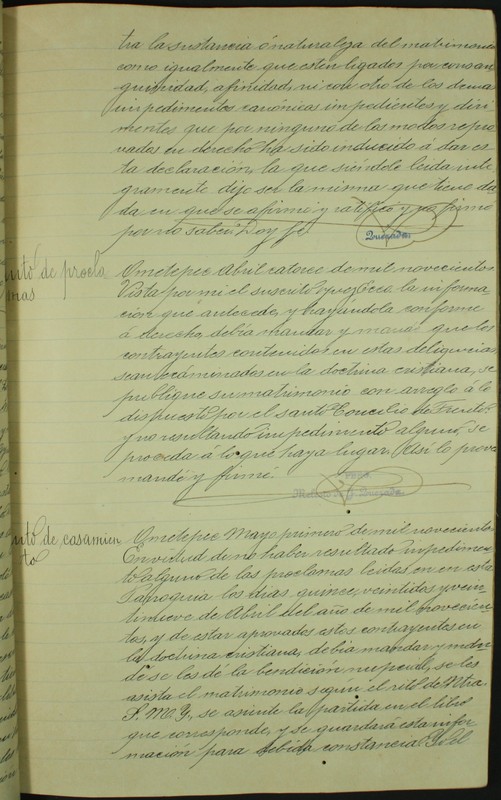 tra la sustancia ó naturaleza del matrimonio
como igualmente que esten ligados por consan
guinidad, afinidad, ni con otro de los demas
impedimentos canónicos impedientes y diri
mentes que por ninguno de los modos repro
vados en derecho ha sido inducido á dar es
ta declaración, la que siéndole leida inte
gramente dijo ser la misma que tiene da
da en que se afirmó y ratificó y no firmó
por no saber. Doy fé
Quezada
Auto de procla
mas
Ometepec Abril catorce de mil novecientos
Vista por mi el suscrito la informa
cion que antecede, y hayandola conforme
á derecho debia mandar y mandó que los
contrayentes contenidos en estas deligencias
sean ecsaminados en la doctrina cristiana, se
publique su matrimonio con arreglo á lo
dispuesto por el santo Concilio de Trento
y no resultando impedimento alguno, se
proceda á lo que haya lugar. Asi lo prove
mandó y firmó.
Quezada
Auto de casamien
to
Ometepec Mayo primero de mil novecientos
En virtud de no haber resultado impedimen
to alguno de las proclamas leidas en en esta
Parroquia los dias quince, veintidos y vein
tinueve de Abril del año de mil novecien
tos, y de estar aprovados estos contrayentes en
la doctrina cristiana, debia mandar y mandó
se les dé la bendición nupcial, se les
asista el matrimonio según el rito de Ntra
S. M. Y., se asiente la partida en el libro
que corresponde, y se guardará esta infor
mación para debida constancia. El